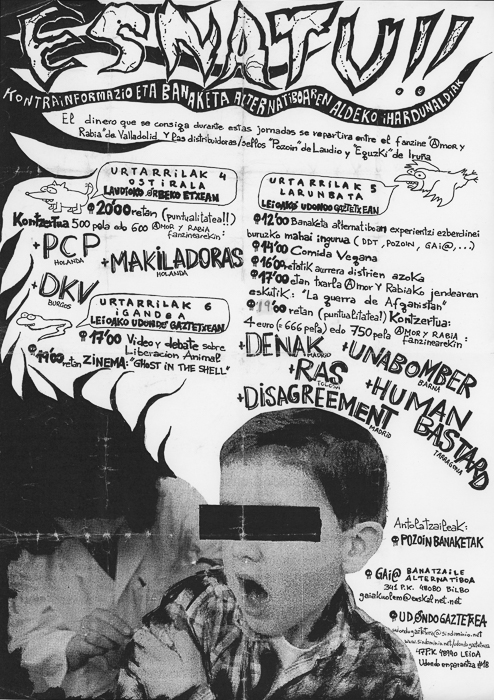 ESNATU!!
KONTRAINFORMAZIO ETA BANAKETA ALTERNATIBOAREN ALDEKO IHARDUNALDIAK
El dinero que se consiga durante estas jornadas se repartira entre el fanzine "Amor y
Rabia" de Valladolid y las distribuidoras/sellos "Pozoin" de Laudio y "Eguzki" de Iruña
URTARRILAK 4
OSTIRALA
LAUDIOKO ORBEKO ETXEAN
20'00 retan (puntualitatea!!)
Kontzertua 500 pela edo 600 Amor y Rabia
fanzinearekin:
+PCP
HOLANDA
+MAKILADORAS
HOLANDA
+DKV
BURGOS
URTARRILAK 6
IGANDEA
LEIOAKO UDONDO GAZTETXEAN
17'00 Video y debate sobre
Liberacion Animal
19'00 retan ZINEMA: "GHOST IN THE SHELL"
URTARRILAK 5
LARUNBATA
LEIOAKO UDONDO GAZTETXEAN
12'00 Banaketa alternatiboan experientzi ezberdinei
buruzko mahai ingurua (DDT, POZOIN, GAI@,...)
14'00 Comida Vegana
16'00etatik aurrera distrien azoka
17'00 etan txarla Amor y Rabiako jendearen
eskutik: "La guerra de Afganistan"
19'00 retan (puntualitatea!) Kontzertua:
4 euro (=666 pela) edo 750 pela Amor y Rabia
fanzinearekin:
+DENAK
MADRID
+UNABOMBER
BARNA
+RAS
TOLOSA
+HUMAN BASTARD
TARRAGONA
+DISAGREEMENT
MADRID
Antolatzaileak:
POZOIN BANAKETAK
GAI@ BANATZAILE
ALTERNATIBOA
341 P.K. 48080 BILBO
gaiakuolem@euskal.net.net
UDONDO GAZTETXEA
udondogaztetxea@sindominio.net
www.sindominio.net/udondogaztetxea
47 P.K 48940 LEIOA
Udondo enparantza #18